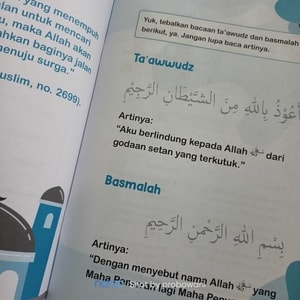 yang menempuh
lan untuk mencari
u, maka Allah akan
ahkan baginya jalan
menuju surga."
uslim, no. 2699).
Yuk, tebalkan bacaan ta'awudz dan basmalah
berikut, ya. Jangan lupa baca artinya.
Ta'awwudz
أَعُوْذُ بِاللهِ مِنَ الشَّيْطَانِ الرَّجِيْمِ
Artinya:
"Aku berlindung kepada Allah ﷻ dari
godaan setan yang terkutuk."
Basmalah
بِسْمِ اللهِ الرَّحْمٰنِ الرَّحِيْمِ
Artinya:
"Dengan menyebut nama Allah ﷻ yang
Maha Pen lagi Maha
Shot by probowani